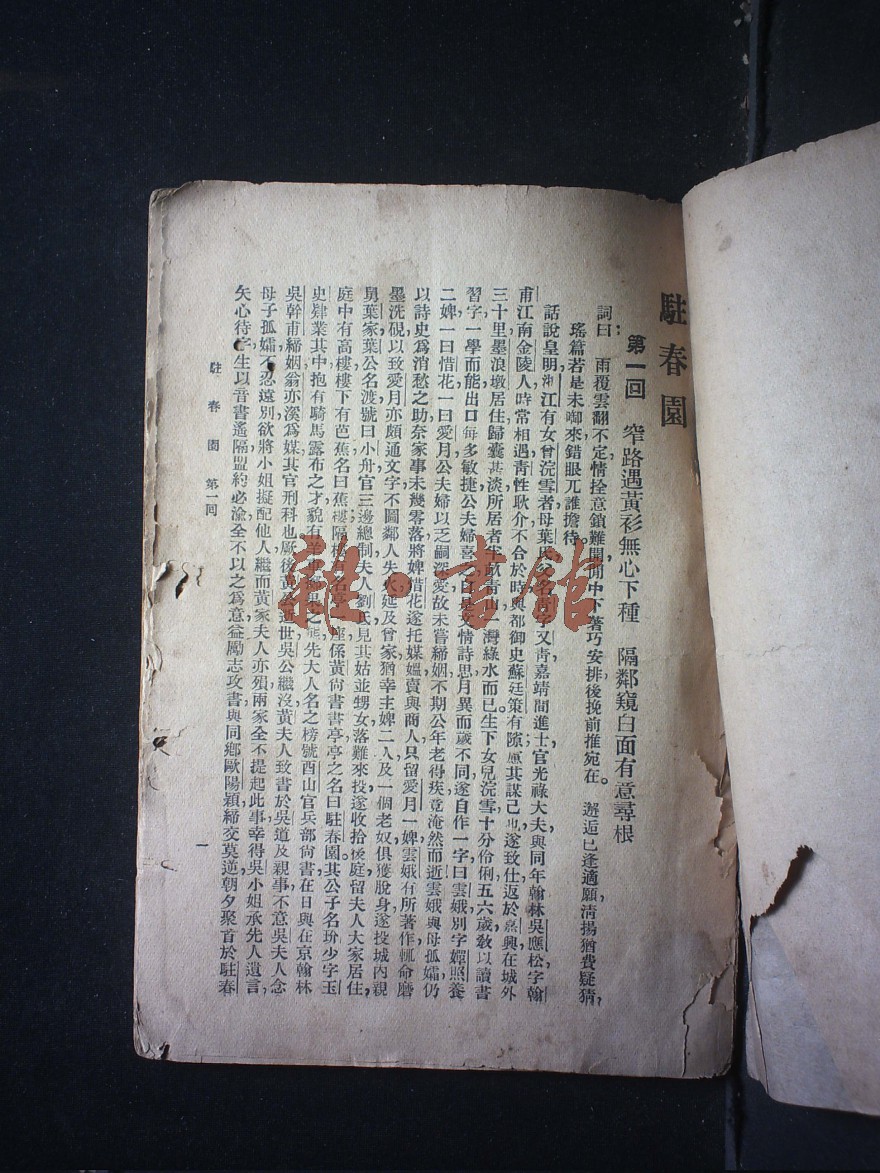 駐春園
第一回　窄路遇黃衫無心下種　隔鄰窺白面有意尋根
詞曰：　雨覆雲翻不定，情拴意鎖難開，閒中下著巧安排，後挽前推宛在。　邂逅已逢適願，清揚猶費疑猜，
瑤篇若是未啣來，錯眼兀誰擔待。
話說皇明浙江有女曾浣雪者，母葉氏，父名青，字又青，嘉靖間進士，官光祿大夫，與同年翰林吳應松字翰
甫，江南金陵人，時常相遇，青性耿介，不合於時，與都御史蘇廷策有隙，慮其謀己也，遂致仕返於嘉興，在城外
三十里墨浪墩居住，歸囊甚淡，所居者半畝青山，一灣綠水而已，生下女兒浣雪，十分伶俐，五六歲敎以讀書
習字，一學而能，出口每多敏捷，公夫婦喜之，自是文情詩思，月異而歲不同，遂自作一字曰雲娥，別字嬋照，養
二婢，一曰惜花，一曰愛月，公夫婦以乏嗣深愛，故未嘗締姻，不期公年老得疾，竟淹然而逝，雲娥與母孤孀，仍
以詩史爲消愁之助，奈家事未幾零落，將婢惜花遂托媒媼賣與商人，只留愛月一婢，雲娥有所著作，輒命磨
墨洗硯，以致愛月亦頗通文字，不圖鄰人失火，延及曾家，猶幸主婢二人及一個老奴，俱獲脫身，遂投城內親
舅葉家，葉公名渡，號曰小舟，官三邊總制，夫人劉氏，見其姑並甥女落難來投，遂收拾後庭，留夫人大家居住，
庭中有高樓，樓下有芭蕉，名曰蕉樓，隔樓一名亭一座，係黃尙書書亭，亭之名曰駐春園，其公子名玠，少字玉
史，肄業其中，抱有騎馬露布之才，貌有羊車擲果之態，先大人名之榜，號酉山，官兵部尙書，在日與在京翰林
吳幹甫締姻，翁亦溪爲媒，其官刑科也，厥後黃公逝世，吳公繼沒，黃夫人致書於吳，道及親事，不意吳夫人念
母子孤孀，不忍遠別，欲將小姐擬配他人，繼而黃家夫人亦殞，兩家全不提起此事，幸得吳小姐承先人遺言，
矢心待字，生以音書遙隔，盟約必渝，全不以之爲意，益勵志攻書，與同鄉歐陽穎締交莫逆，朝夕聚首於駐春
駐春園　第一回
一
雜·書館